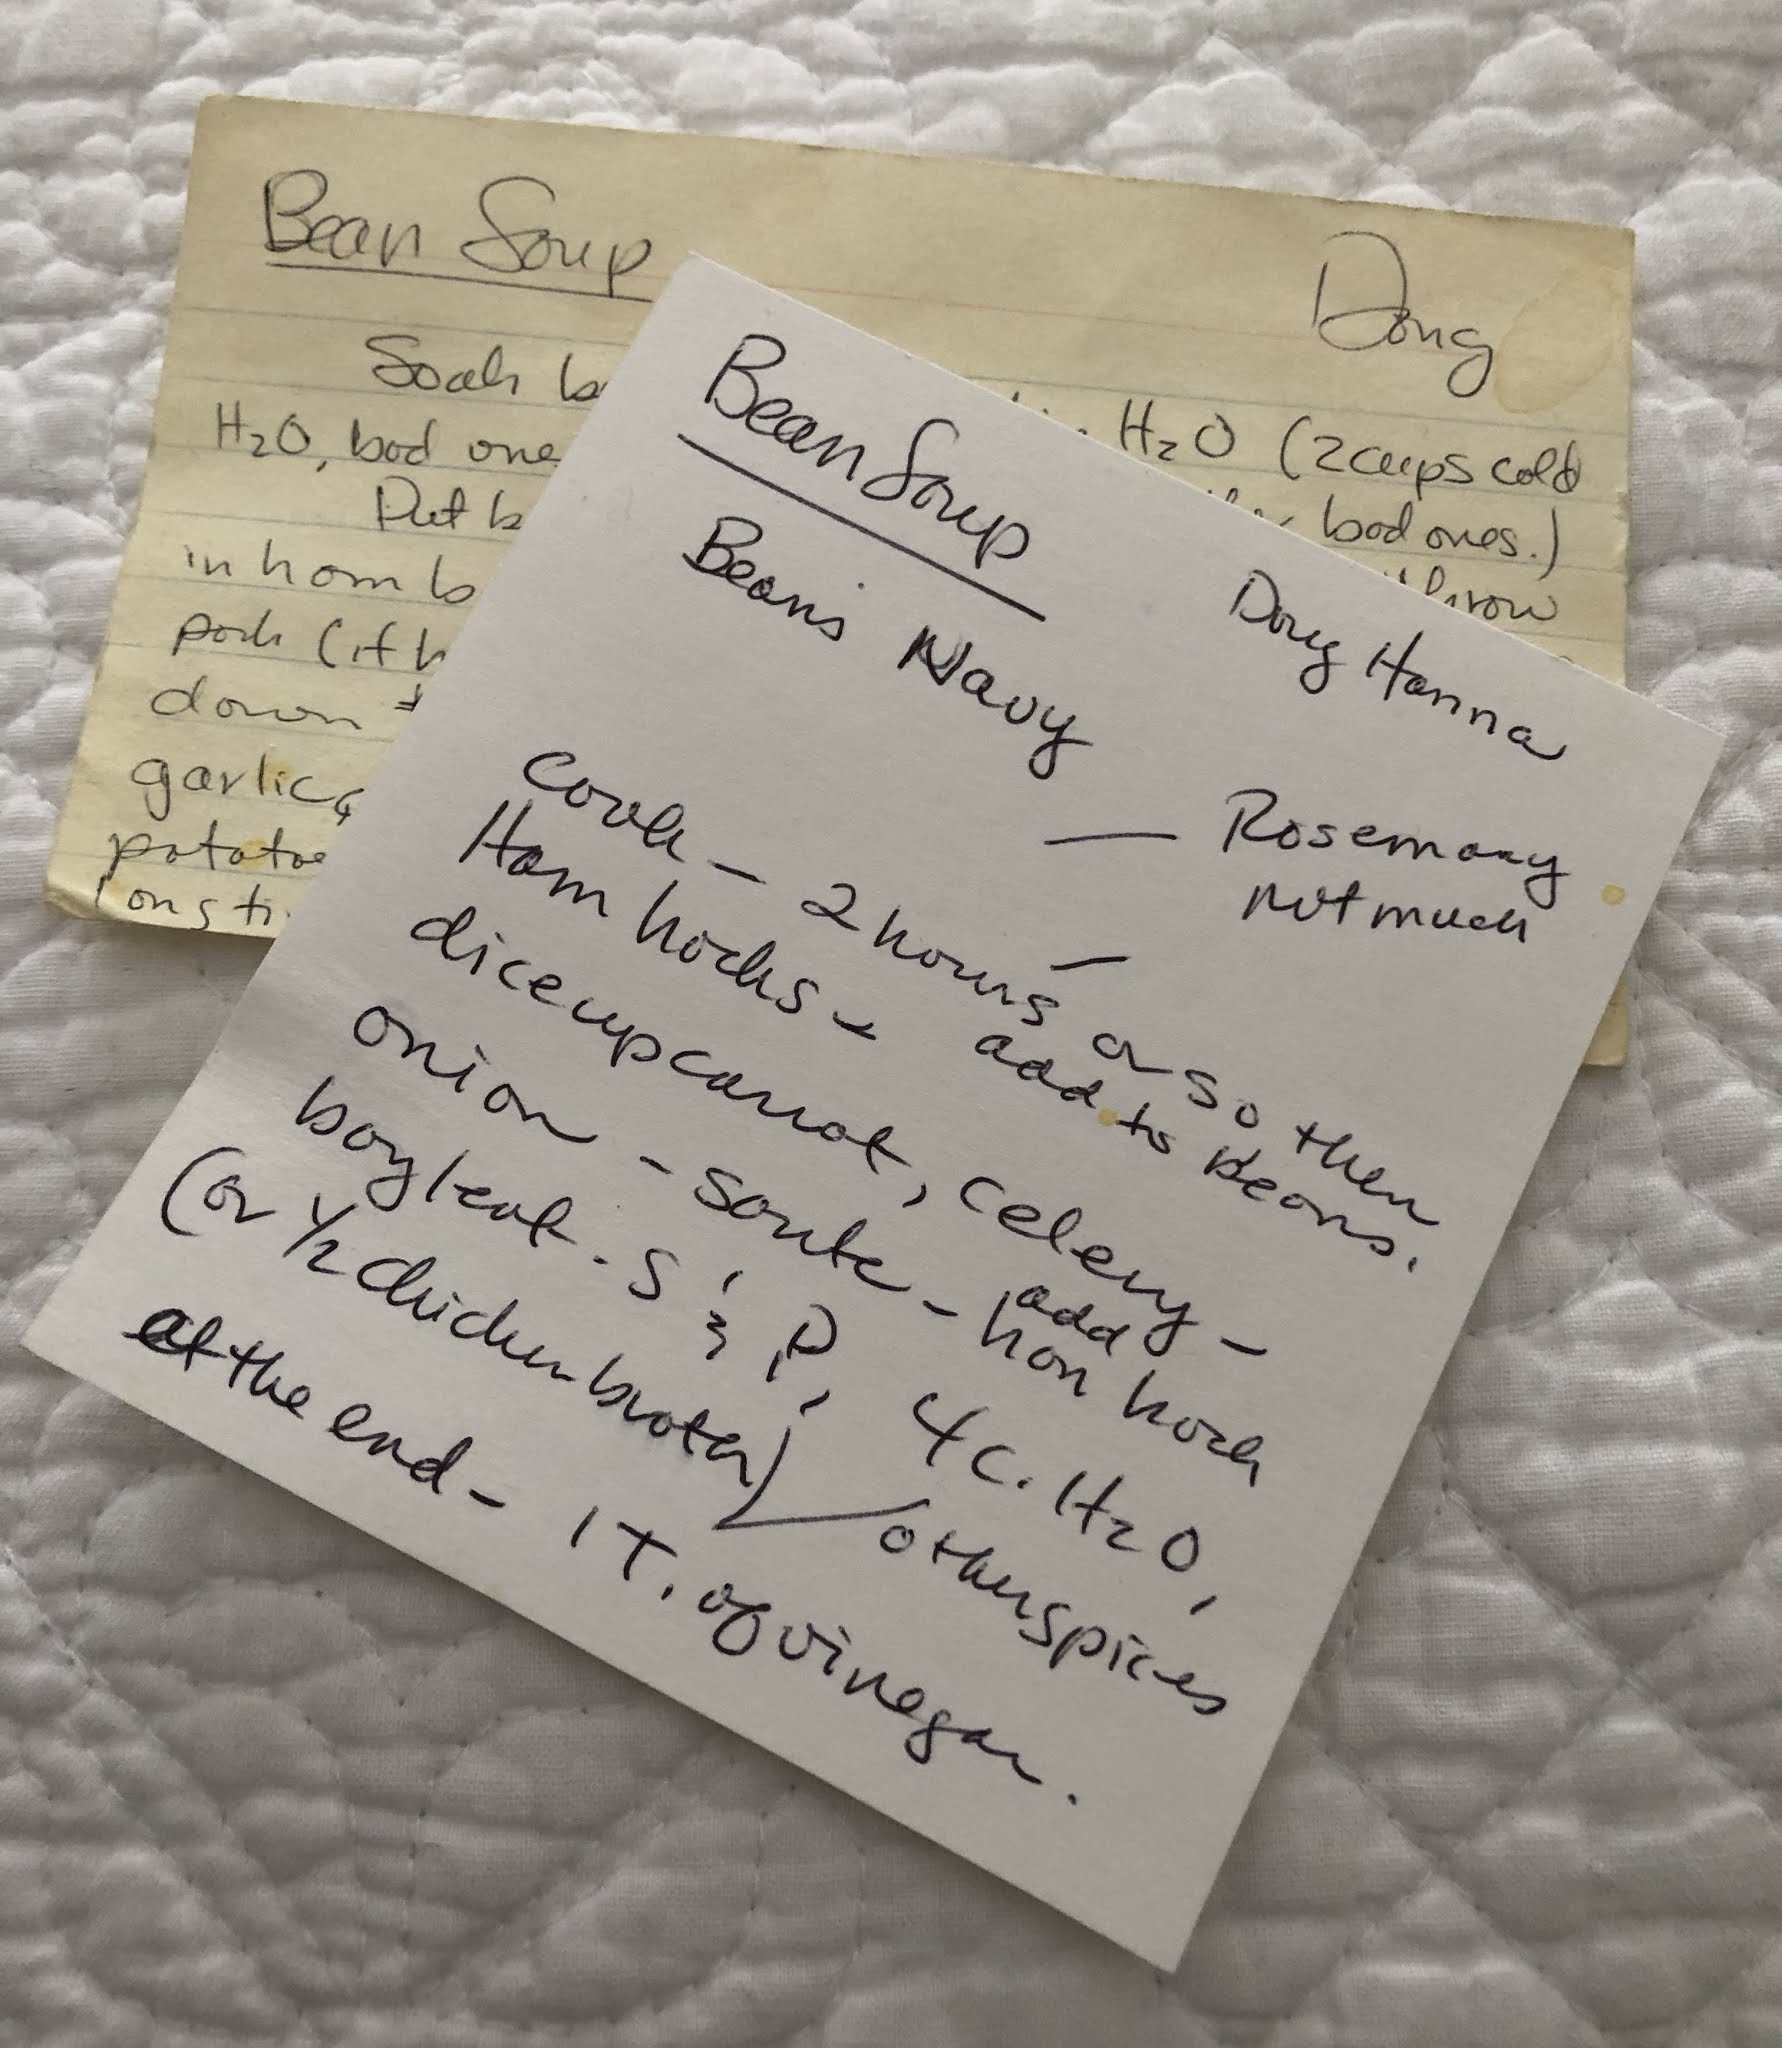 Bean Soup
Doug
Soak
H2O (2 cups cold
H2O, bad one
bad ones.)
Put
throw
in ham
pork (if
down
garlic &
potatoe
long
Bean Soup
Doug Hanna
Beans Navy
— Rosemary
not much
cook - 2 hours or so then
Ham hocks - add to beans.
dice up carrot, celery -
onion - saute - add
hon hock
bay leaf. S & P, 4 c. H2O,
(or 1/2 chicken broth)
other spices
at the end - 1 T. of vinegar.